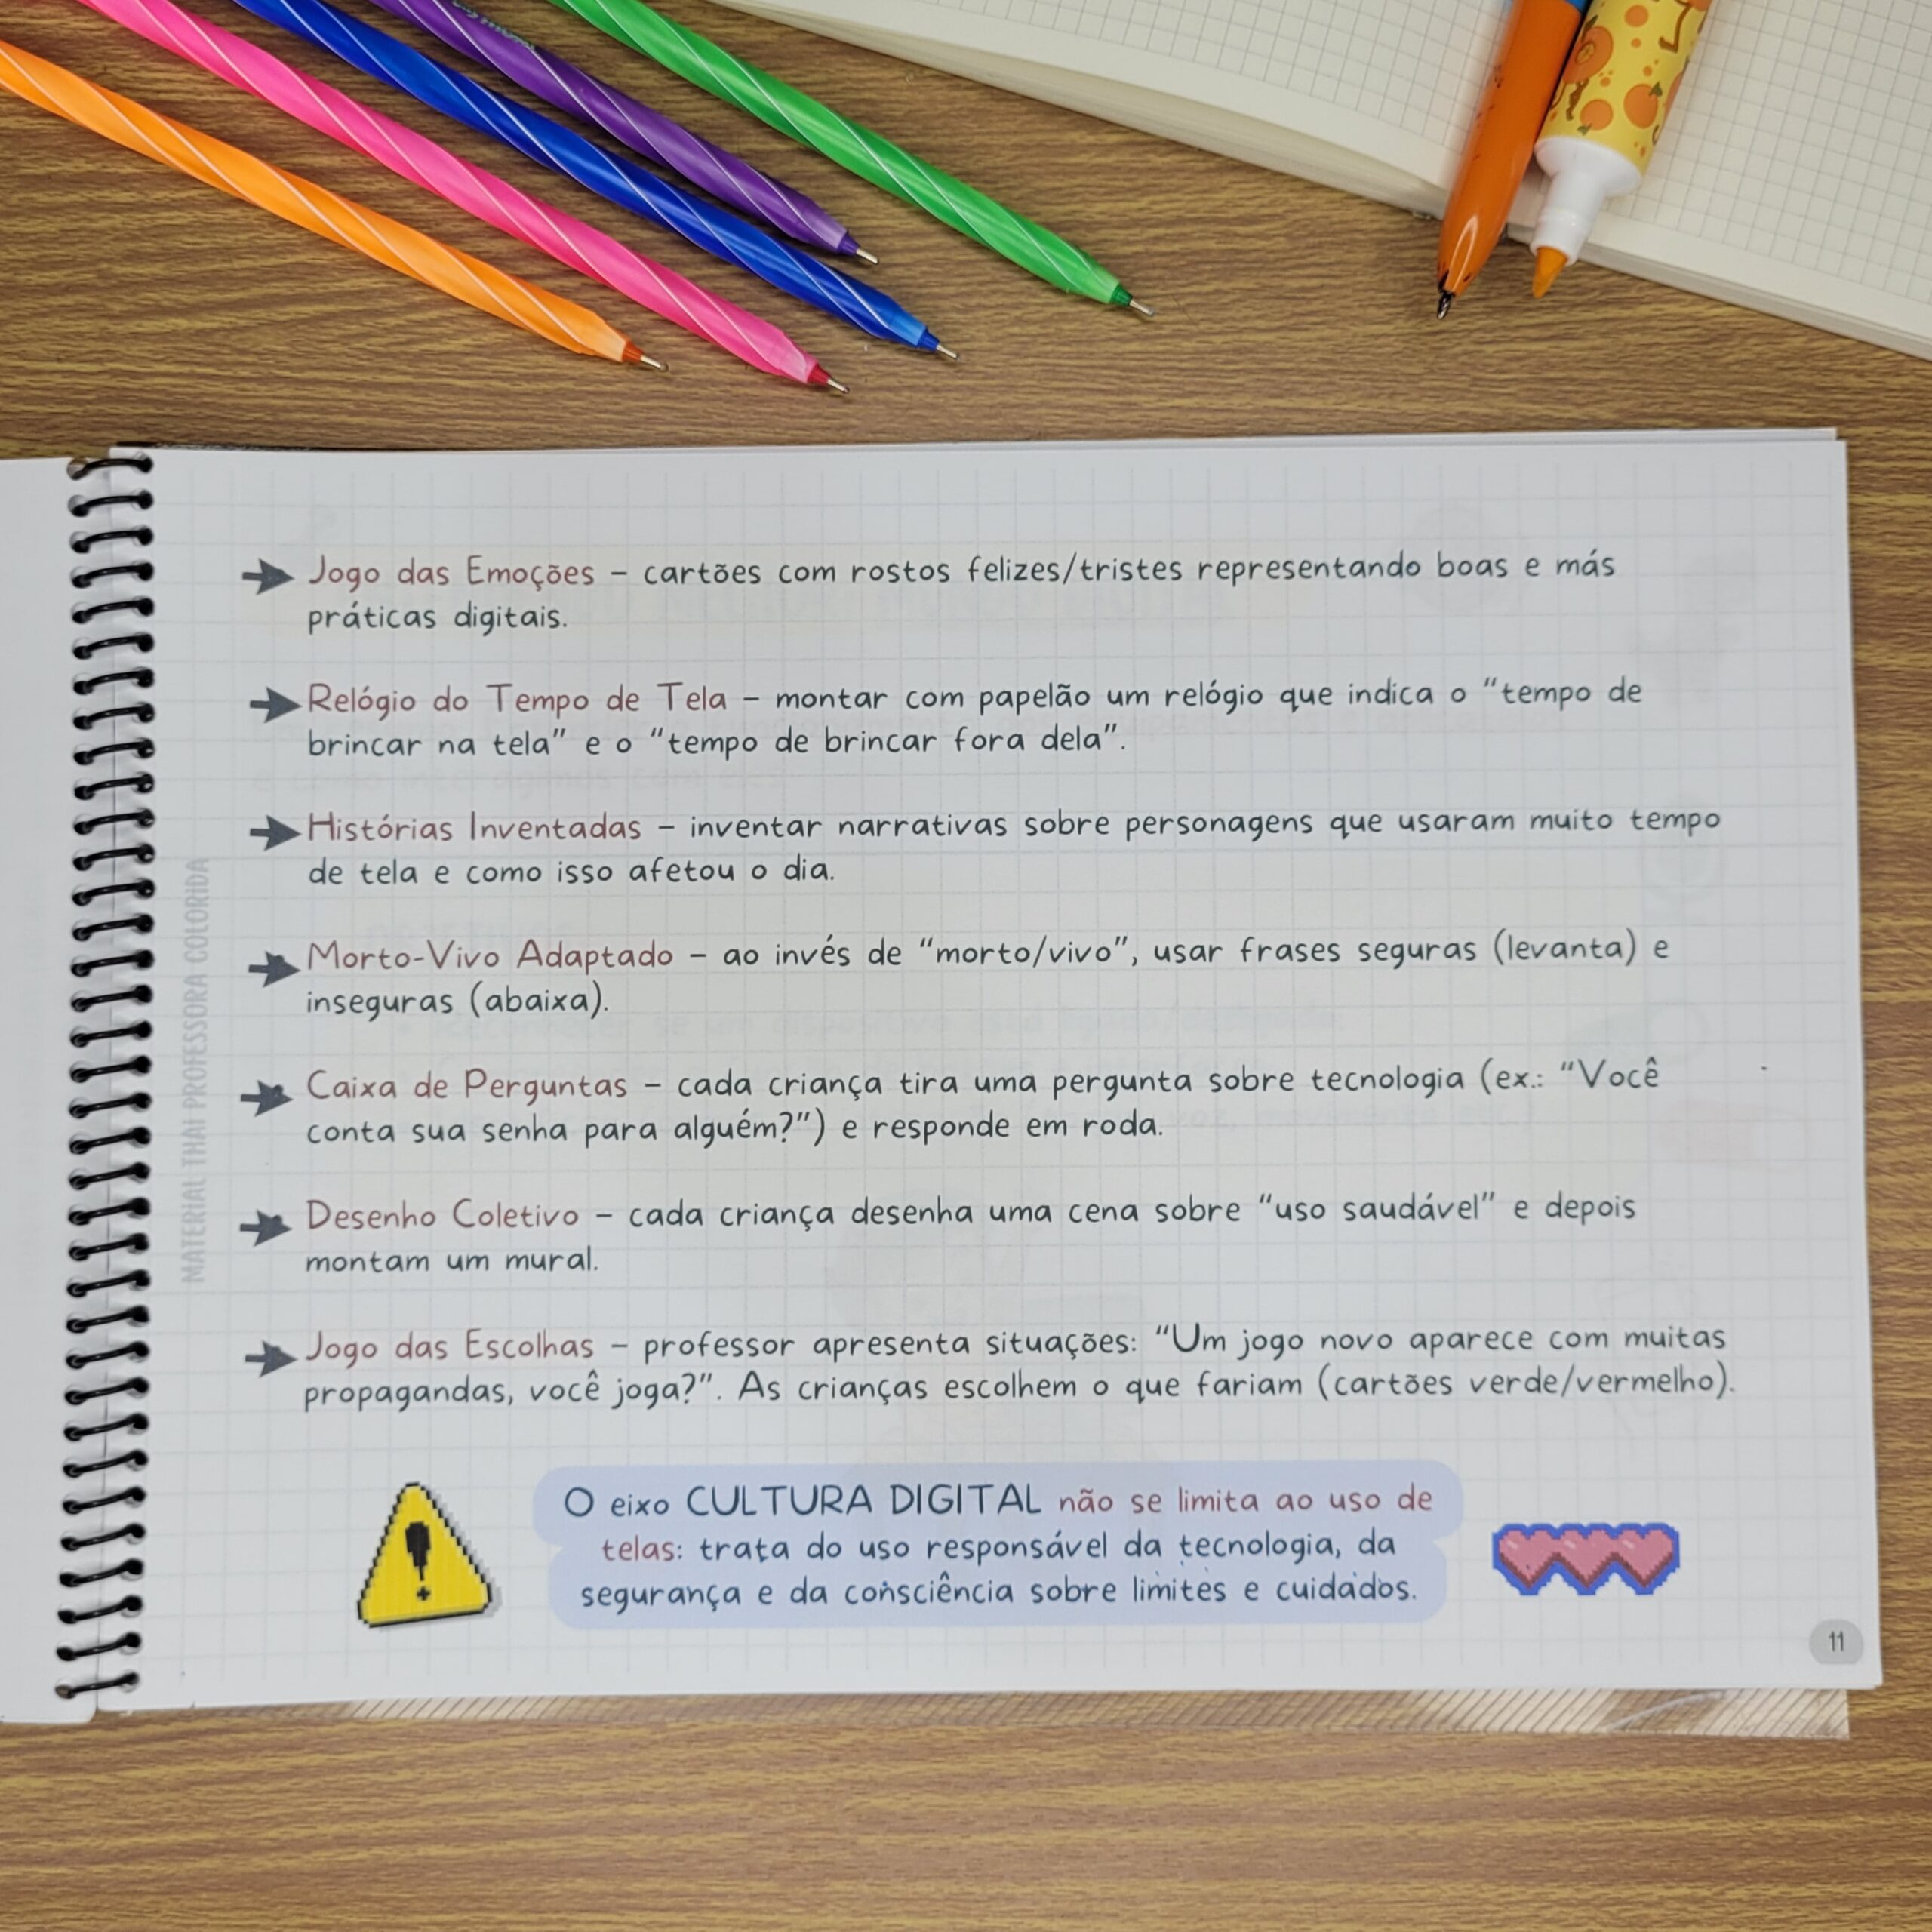 Jogo das Emoções – cartões com rostos felizes/tristes representando boas e más
práticas digitais.
Relógio do Tempo de Tela – montar com papelão um relógio que indica o “tempo de
brincar na tela” e o “tempo de brincar fora dela”.
Histórias Inventadas – inventar narrativas sobre personagens que usaram muito tempo
de tela e como isso afetou o dia.
Morto-Vivo Adaptado – ao invés de “morto/vivo”, usar frases seguras (levanta) e
inseguras (abaixa).
Caixa de Perguntas – cada criança tira uma pergunta sobre tecnologia (ex.: “Você
conta sua senha para alguém?”) e responde em roda.
Desenho Coletivo – cada criança desenha uma cena sobre “uso saudável” e depois
montam um mural.
Jogo das Escolhas – professor apresenta situações: “Um jogo novo aparece com muitas
propagandas, você joga?”. As crianças escolhem o que fariam (cartões verde/vermelho).
O eixo CULTURA DIGITAL não se limita ao uso de
telas: trata do uso responsável da tecnologia, da
segurança e da consciência sobre limites e cuidados.
11
MATERIAL THAI PROFESSORA COLORIDA